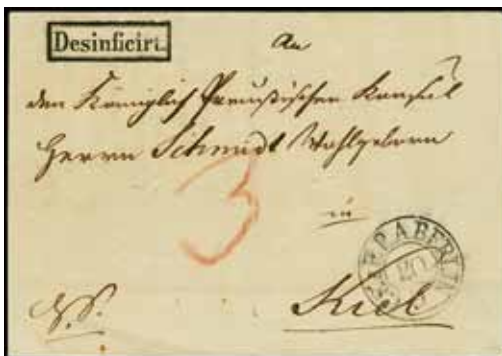 Desinficirt.
An
den Königlich Preußischen Konsul
Herrn Schmidt Wohlgeborn
3
in
Kiel